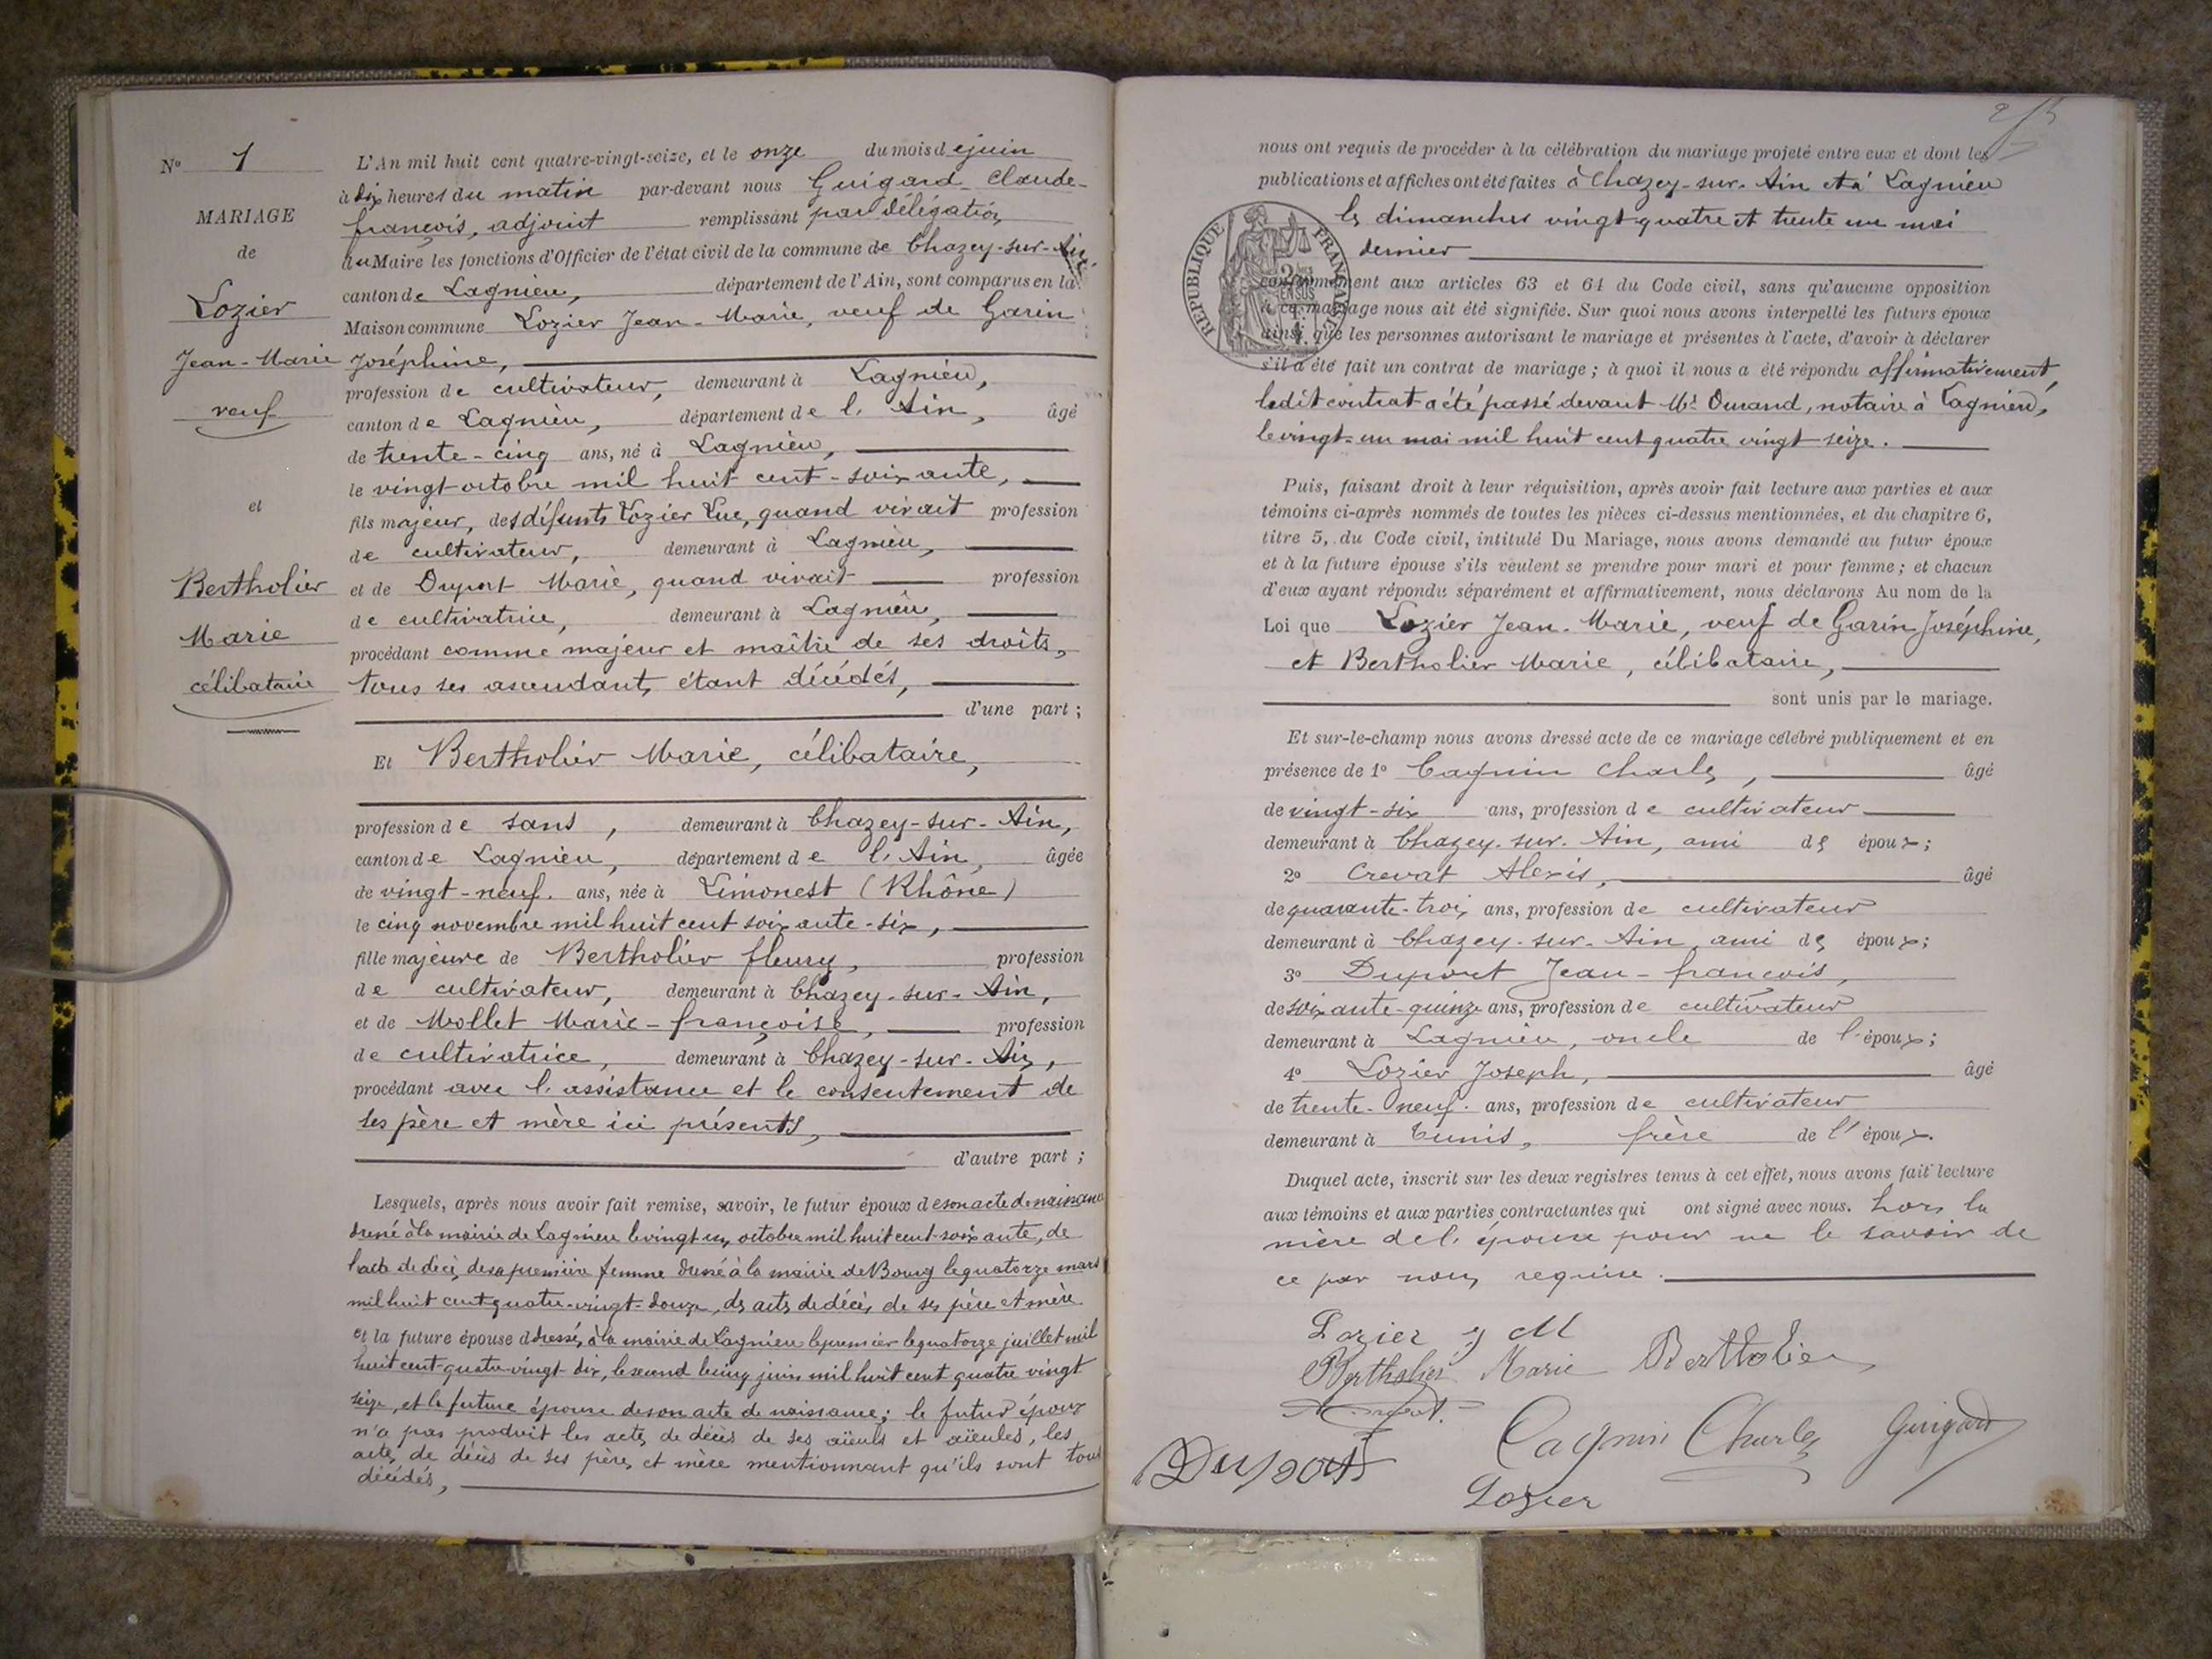 N° 1
MARIAGE
de
Lozier
Jean-Marie
veuf
et
Bertholier
Marie
célibataire
L'An mil huit cent quatre-vingt-seize, et le onze du mois de juin
à dix heures du matin par-devant nous Guigard Claude-
françois, adjoint remplissant par délégation
du Maire les fonctions d'Officier de l'état civil de la commune de Chazey-sur-Ain,
canton de Lagnieu, département de l'Ain, sont comparus en la
Maison commune Lozier Jean-Marie, veuf de Garin
Joséphine,
profession de cultivateur, demeurant à Lagnieu,
canton de Lagnieu, département de l'Ain, âgé
de trente-cinq ans, né à Lagnieu,
le vingt octobre mil huit cent-soixante,
fils majeur, des défunts Lozier Luc, quand vivait profession
de cultivateur, demeurant à Lagnieu,
et de Duport Marie, quand vivait profession
de cultivatrice, demeurant à Lagnieu,
procédant comme majeur et maître de ses droits,
tous ses ascendants étant décédés,
d'une part ;
Et Bertholier Marie, célibataire,
profession de sans, demeurant à Chazey-sur-Ain,
canton de Lagnieu, département de l'Ain, âgée
de vingt-neuf ans, née à Limonest (Rhône)
le cinq novembre mil huit cent soixante-six,
fille majeure de Bertholier fleury, profession
de cultivateur, demeurant à Chazey-sur-Ain,
et de Mollet Marie-françoise, profession
de cultivatrice, demeurant à Chazey-sur-Ain,
procédant avec l'assistance et le consentement de
ses père et mère ici présents,
d'autre part ;
Lesquels, après nous avoir fait remise, savoir, le futur époux de son acte de naissance
dressé à la mairie de Lagnieu le vingt un octobre mil huit cent-soixante, de
l'acte de décès de sa première femme dressé à la mairie de Bourg le quatorze mars
mil huit cent quatre-vingt-douze, des actes de décès de ses père et mère
et la future épouse d dressés à la mairie de Lagnieu le premier le quatorze juillet mil
huit cent-quatre-vingt-dix, le second le cinq juin mil huit cent quatre vingt
seize, et la future épouse de son acte de naissance ; le futur époux
n'a pas produit les actes de décès de ses aïeuls et aïeules, les
actes de décès de ses père et mère mentionnant qu'ils sont tous
décédés,
nous ont requis de procéder à la célébration du mariage projeté entre eux et dont les
publications et affiches ont été faites à Chazey-sur-Ain et à Lagnieu
les dimanches vingt-quatre et trente un mai
dernier
RÉPUBLIQUE FRANÇAISE
conformément aux articles 63 et 64 du Code civil, sans qu'aucune opposition
à ce mariage nous ait été signifiée. Sur quoi nous avons interpellé les futurs époux
ainsi que les personnes autorisant le mariage et présentes à l'acte, d'avoir à déclarer
s'il a été fait un contrat de mariage ; à quoi il nous a été répondu affirmativement,
ledit contrat a été passé devant Me Durand, notaire à Lagnieu,
le vingt-un mai mil huit cent quatre vingt seize.
Puis, faisant droit à leur réquisition, après avoir fait lecture aux parties et aux
témoins ci-après nommés de toutes les pièces ci-dessus mentionnées, et du chapitre 6,
titre 5, du Code civil, intitulé Du Mariage, nous avons demandé au futur époux
et à la future épouse s'ils veulent se prendre pour mari et pour femme ; et chacun
d'eux ayant répondu séparément et affirmativement, nous déclarons Au nom de la
Loi que Lozier Jean-Marie, veuf de Garin Joséphine,
et Bertholier Marie, célibataire,
sont unis par le mariage.
Et sur-le-champ nous avons dressé acte de ce mariage célébré publiquement et en
présence de 1° Cagnin Charles, âgé
de vingt-six ans, profession de cultivateur
demeurant à Chazey-sur-Ain, ami des époux ;
2° Crevat Alexis, âgé
de quarante-trois ans, profession de cultivateur
demeurant à Chazey-sur-Ain, ami des époux ;
3° Duport Jean-françois,
de soixante-quinze ans, profession de cultivateur
demeurant à Lagnieu, oncle de l'époux ;
4° Lozier Joseph, âgé
de trente-neuf ans, profession de cultivateur
demeurant à Tunis, frère de l'époux.
Duquel acte, inscrit sur les deux registres tenus à cet effet, nous avons fait lecture
aux témoins et aux parties contractantes qui ont signé avec nous. hors la
mère de l'épouse pour ne le savoir de
ce par nous requise.
Lozier J M
Bertholier Marie Bertholier
Cagnin Charles Guigard
Duport
Lozier